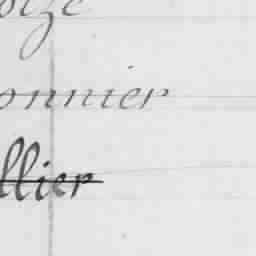 oize
onnier
llier